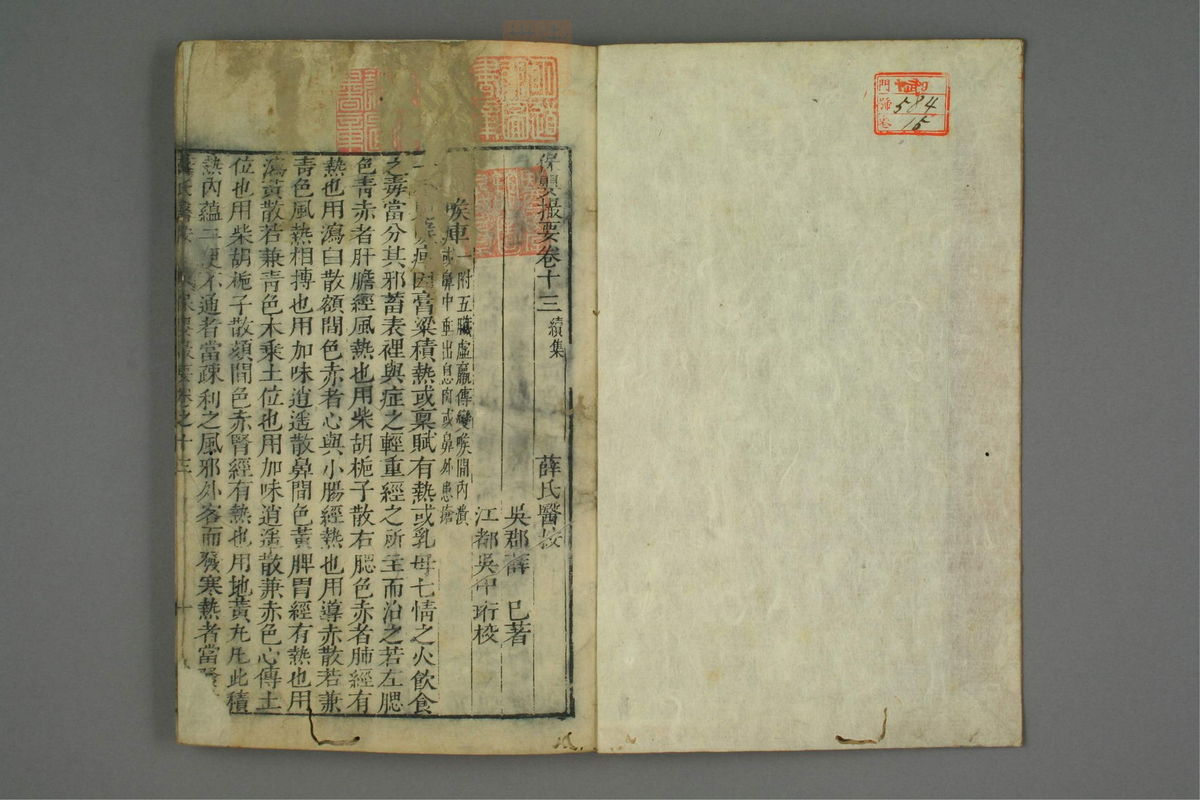 門
號 584
卷 15
保嬰撮要卷十三 續集 薛氏醫按
吳郡薛 已著
江都吳中珩校
喉痺 附五臟虛羸傳變喉間內潰
或鼻中垂出息肉或鼻外患瘡
因膏粱積熱或稟賦有熱或乳母七情之火飲食
之毒當分其邪蓄表裡與症之輕重經之所主而治之若左腮
色青赤者肝膽經風熱也用柴胡梔子散右腮色赤者肺經有
熱也用瀉白散額間色赤者心與小腸經熱也用導赤散若兼
青色風熱相搏也用加味逍遙散鼻間色黃脾胃經有熱也用
瀉黃散若兼青色木乘土位也用加味逍遙散兼赤色心傳土
位也用柴胡梔子散頦間色赤腎經有熱也用地黃丸凡此積
熱內蘊二便不通者當疎利之風邪外客而發寒熱者當發
薛氏醫按 保嬰撮要卷之十三 一